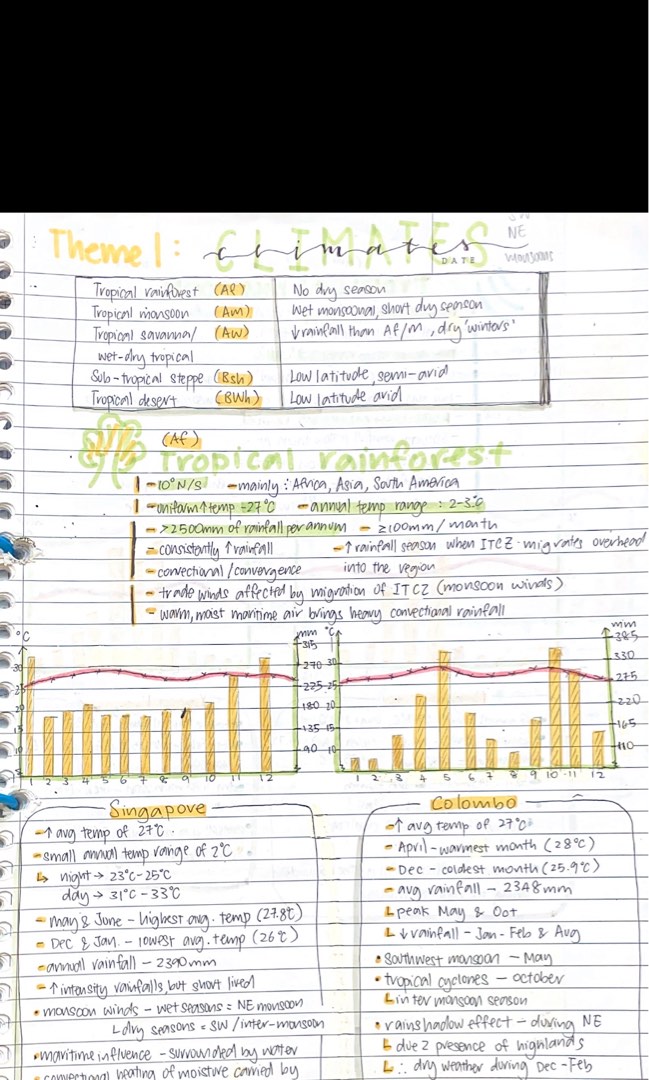 Theme 1: climates
CLIMATES
DATE
NE
monsoons
Tropical rainforest (AR) No dry season
Tropical monsoon (Am) Wet monsoonal, short dry season
Tropical savanna/ (Aw) ↓rainfall than Af/m, dry 'winters'
wet-dry tropical
Sub-tropical steppe (Bsh) Low latitude, semi-arid
Tropical desert (BWh) Low latitude arid
(Af)
Tropical rainforest
- 10°N/S - mainly: Africa, Asia, South America
- uniform ↑temp ~27°C - annual temp range: 2-3°C
- >2500mm of rainfall per annum - ≥100mm/month
- consistently ↑rainfall - ↑rainfall season when ITCZ migrates overhead
- convectional/convergence into the region
- trade winds affected by migration of ITCZ (monsoon winds)
- warm, moist maritime air brings heavy convectional rainfall
°C mm °C mm
315 385
30 270 30 330
25 225 25 275
20 180 20 220
15 135 15 165
10 90 10 110
1 2 3 4 5 6 7 8 9 10 11 12 1 2 3 4 5 6 7 8 9 10 11 12
Singapore
- ↑avg temp of 27°C.
- small annual temp range of 2°C
↳ night → 23°C-25°C
day → 31°C-33°C
- may & June - highest avg. temp (27.8°C)
- Dec & Jan. - lowest avg. temp (26°C)
- annual rainfall - 2390mm
- ↑intensity rainfalls, but short lived
• monsoon winds - wet seasons = NE monsoon
L dry seasons = SW/inter-monsoon
• maritime influence - surrounded by water
• convectional heating of moisture carried by
Colombo
- ↑avg temp of 27°C
- April - warmest month (28°C)
- Dec - coldest month (25.9°C)
- avg rainfall - 2348mm
L peak May & Oct
L ↓rainfall - Jan-Feb & Aug
• Southwest monsoon - May
• tropical cyclones - october
L inter monsoon season
• rainshadow effect - during NE
L due 2 presence of highlands
L ∴ dry weather during Dec-Feb